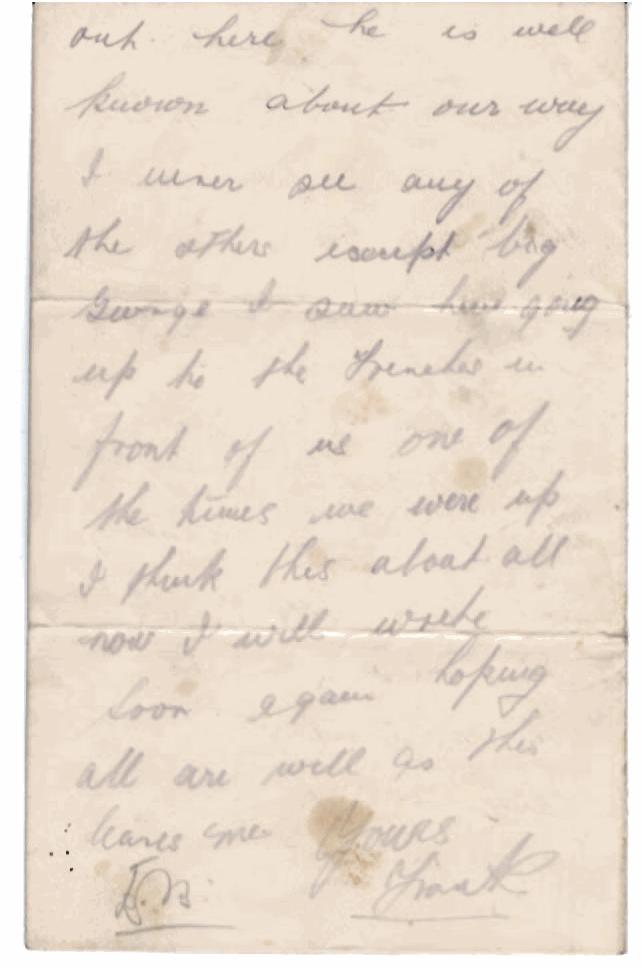 out here he is well
known about our way
I never see any of
the others except big
George I saw him going
up to the Trenches in
front of us one of
the times we were up
I think this about all
now I will write
soon again hoping
all are well as this
leaves me Yours
Frank